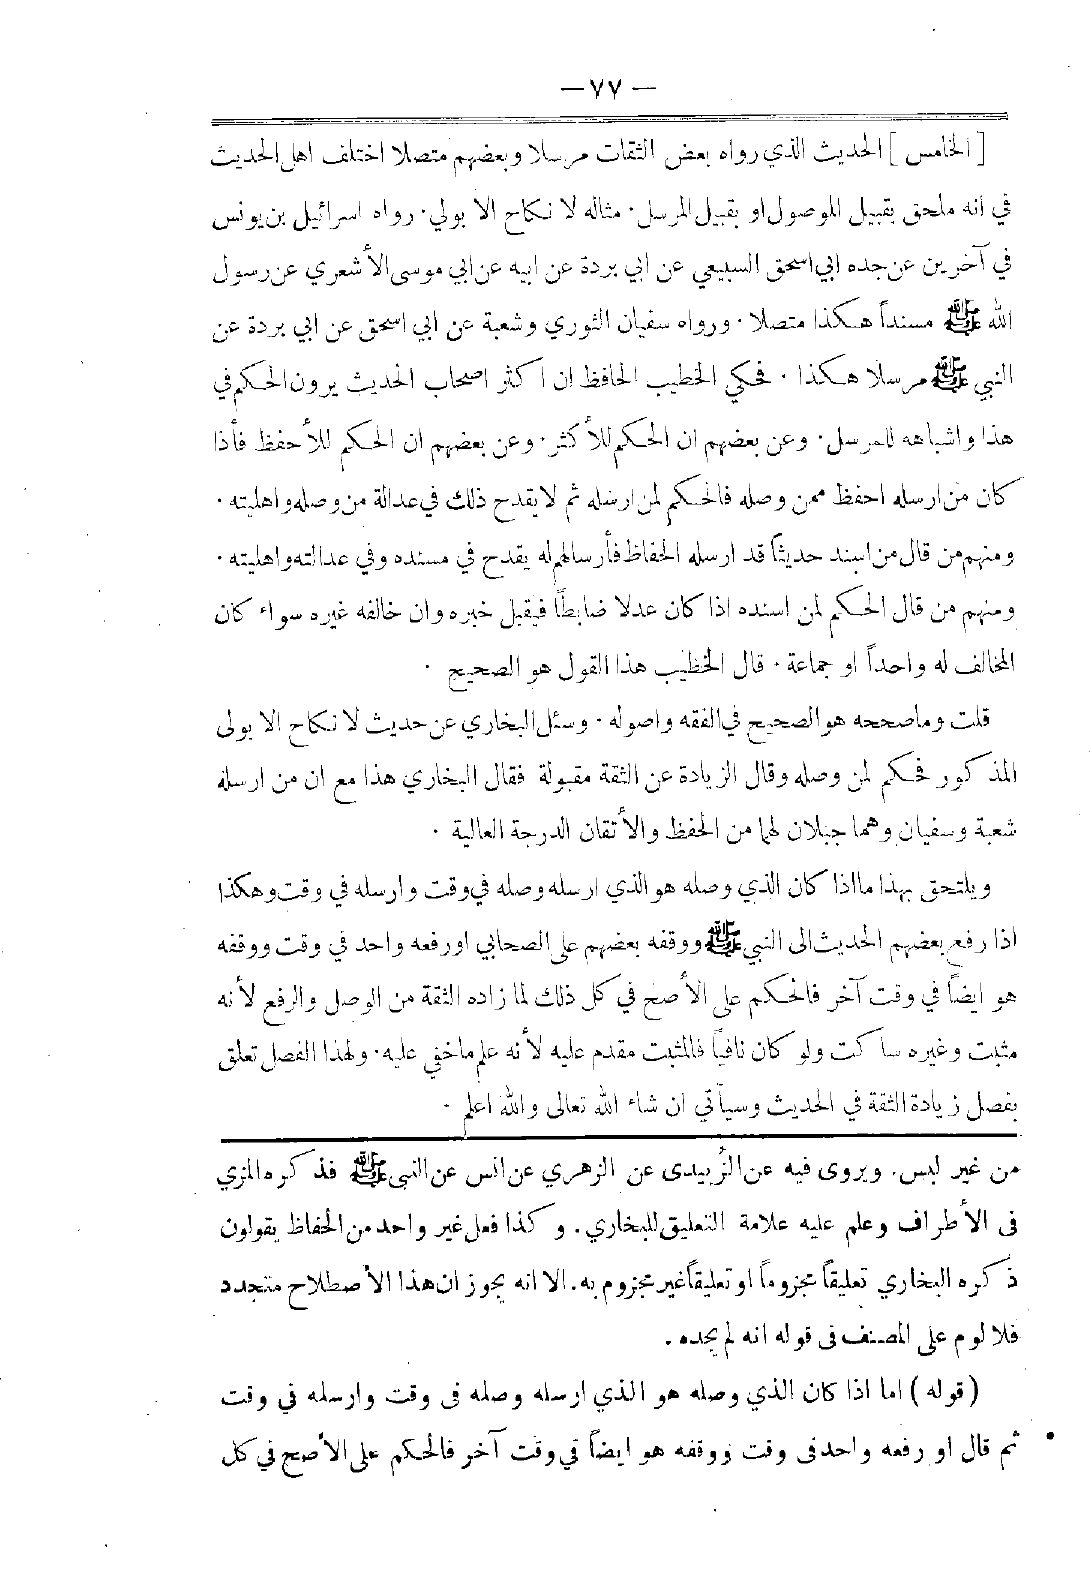 — ٧٧ —
[ الخامس ] الحديث الذي رواه بعض الثقات مرسلا وبعضهم متصلا اختلف اهل الحديث
في انه ملحق بقبيل الموصول او بقبيل المرسل ٠ مثاله لا نكاح الا بولي ٠ رواه اسرائيل بن يونس
في آخرين عن جده ابي اسحق السبيعي عن ابي بردة عن ابيه عن ابي موسى الأشعري عن رسول
الله ﷺ مسنداً هكذا متصلا ٠ ورواه سفيان الثوري وشعبة عن ابي اسحق عن ابي بردة عن
النبي ﷺ مرسلا هكذا ٠ فحكي الخطيب الحافظ ان اكثر اصحاب الحديث يرون الحكم في
هذا واشباهه للمرسل ٠ وعن بعضهم ان الحكم للأكثر ٠ وعن بعضهم ان الحكم للأحفظ فأذا
كان من ارسله احفظ ممن وصله فالحكم لمن ارسله ثم لا يقدح ذلك في عدالة من وصله واهليته ٠
ومنهم من قال من اسند حديثاً قد ارسله الحفاظ فأرسالهم له يقدح في مسنده وفي عدالته واهليته ٠
ومنهم من قال الحكم لمن اسنده اذا كان عدلا ضابطاً فيقبل خبره وان خالفه غيره سواء كان
المخالف له واحداً او جماعة ٠ قال الخطيب هذا القول هو الصحيح ٠
قلت وما صححه هو الصحيح في الفقه واصوله ٠ وسئل البخاري عن حديث لا نكاح الا بولى
المذكور فحكم لمن وصله وقال الزيادة عن الثقة مقبولة فقال البخاري هذا مع ان من ارسله
شعبة وسفيان وهما جبلان لهما من الحفظ والأتقان الدرجة العالية ٠
ويلتحق بهذا ما اذا كان الذي وصله هو الذي ارسله وصله في وقت وارسله في وقت وهكذا
اذا رفع بعضهم الحديث الى النبي ﷺ ووقفه بعضهم على الصحابي او رفعه واحد في وقت ووقفه
هو ايضاً في وقت آخر فالحكم على الأصح في كل ذلك لما زاده الثقة من الوصل والرفع لأنه
مثبت وغيره ساكت ولو كان نافياً فالمثبت مقدم عليه لأنه علم ما خفي عليه ٠ ولهذا الفصل تعلق
بفصل زيادة الثقة في الحديث وسيأتي ان شاء الله تعالى والله اعلم ٠
من غير لبس . ويروى فيه عن الزُبيدى عن الزهري عن انس عن النبى ﷺ فذكره المزي
فى الأطراف وعلم عليه علامة التعليق للبخاري . وكذا فعل غير واحد من الحفاظ يقولون
ذكره البخاري تعليقاً مجزوماً او تعليقاً غير مجزوم به . الا انه يجوز ان هذا الأصطلاح متجدد
فلا لوم على المصنف فى قوله انه لم يجده .
( قوله ) اما اذا كان الذي وصله هو الذي ارسله وصله فى وقت وارسله في وقت
ثم قال او رفعه واحد فى وقت ووقفه هو ايضاً في وقت آخر فالحكم على الأصح في كل